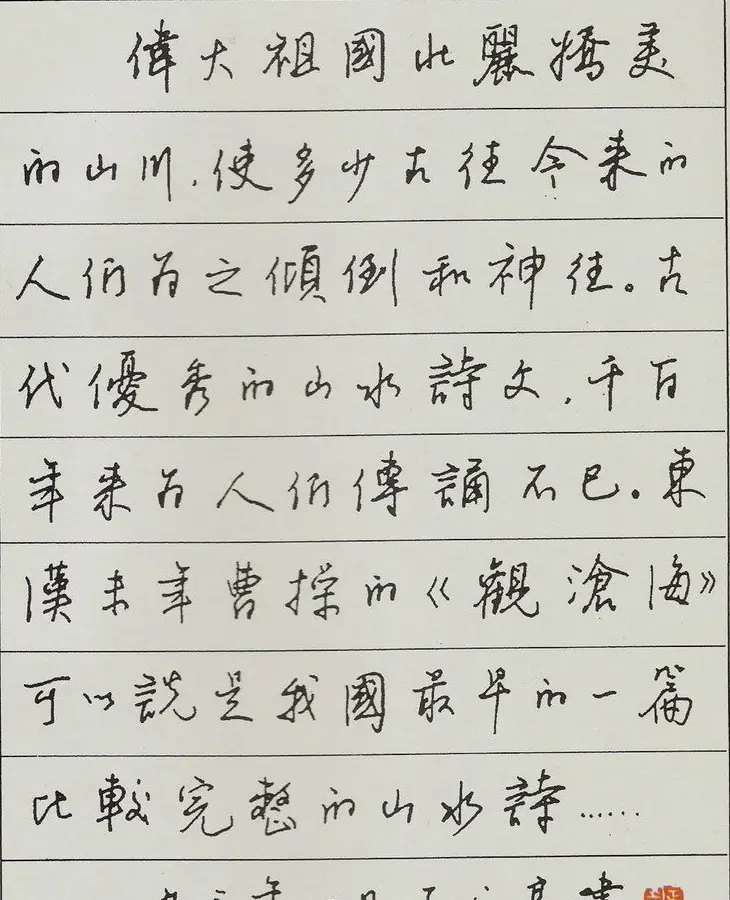 偉大祖國壯麗嬌美
的山川,使多少古往今来的
人们为之傾倒和神往。古
代優秀的山水詩文,千百
年来为人们傳誦不已。東
漢末年曹操的《觀滄海》
可以説是我國最早的一篇
比較完整的山水詩……